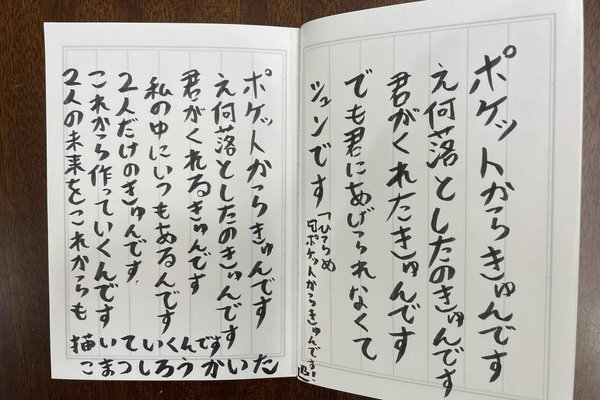 ポケットからきゅんです
え何落としたのきゅんです
君がくれたきゅんです
でも君にあげられなくて
シュンです
「ひらめ
ポケットからきゅんです!
ポケットからきゅんです
え何落としたのきゅんです
君がくれるきゅんです
私の中にいつもあるんです
2人だけのきゅんです
これから作っていくんです
2人の未来をこれからも
描いていくんです
こまつしろうかいた